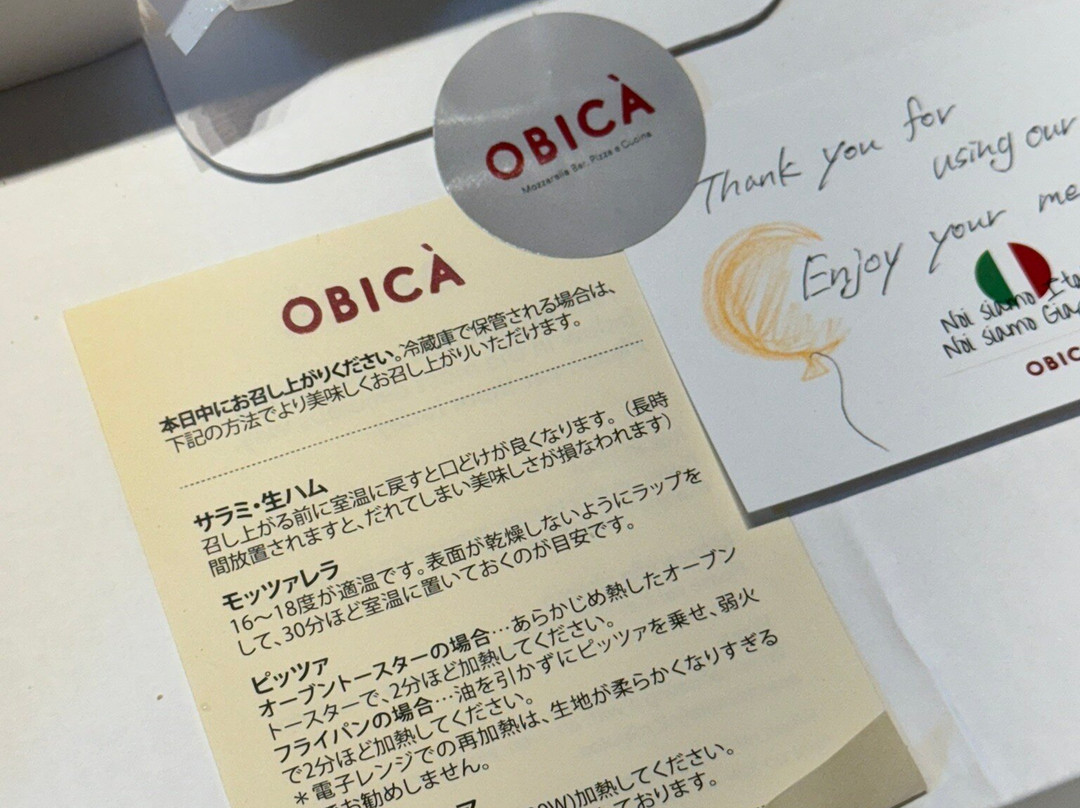 OBICÀ
Mozzarella Bar, Pizza e Cucina
Thank you for
using our
Enjoy your
Noi siamo
Noi siamo
OBICÀ
本日中にお召し上がりください。冷蔵庫で保管される場合は、
下記の方法でより美味しくお召し上がりいただけます。
サラミ・生ハム
召し上がる前に室温に戻すと口どけが良くなります。（長時
間放置されますと、だれてしまい美味しさが損なわれます）
モッツァレラ
16～18度が適温です。表面が乾燥しないようにラップを
して、30分ほど室温に置いておくのが目安です。
ピッツァ
オーブントースターの場合…あらかじめ熱したオーブン
トースターで、2分ほど加熱してください。
フライパンの場合…油を引かずにピッツァを乗せ、弱火
で2分ほど加熱してください。
＊電子レンジでの再加熱は、生地が柔らかくなりすぎる
お勧めしません。
0W)加熱してください。
ております。